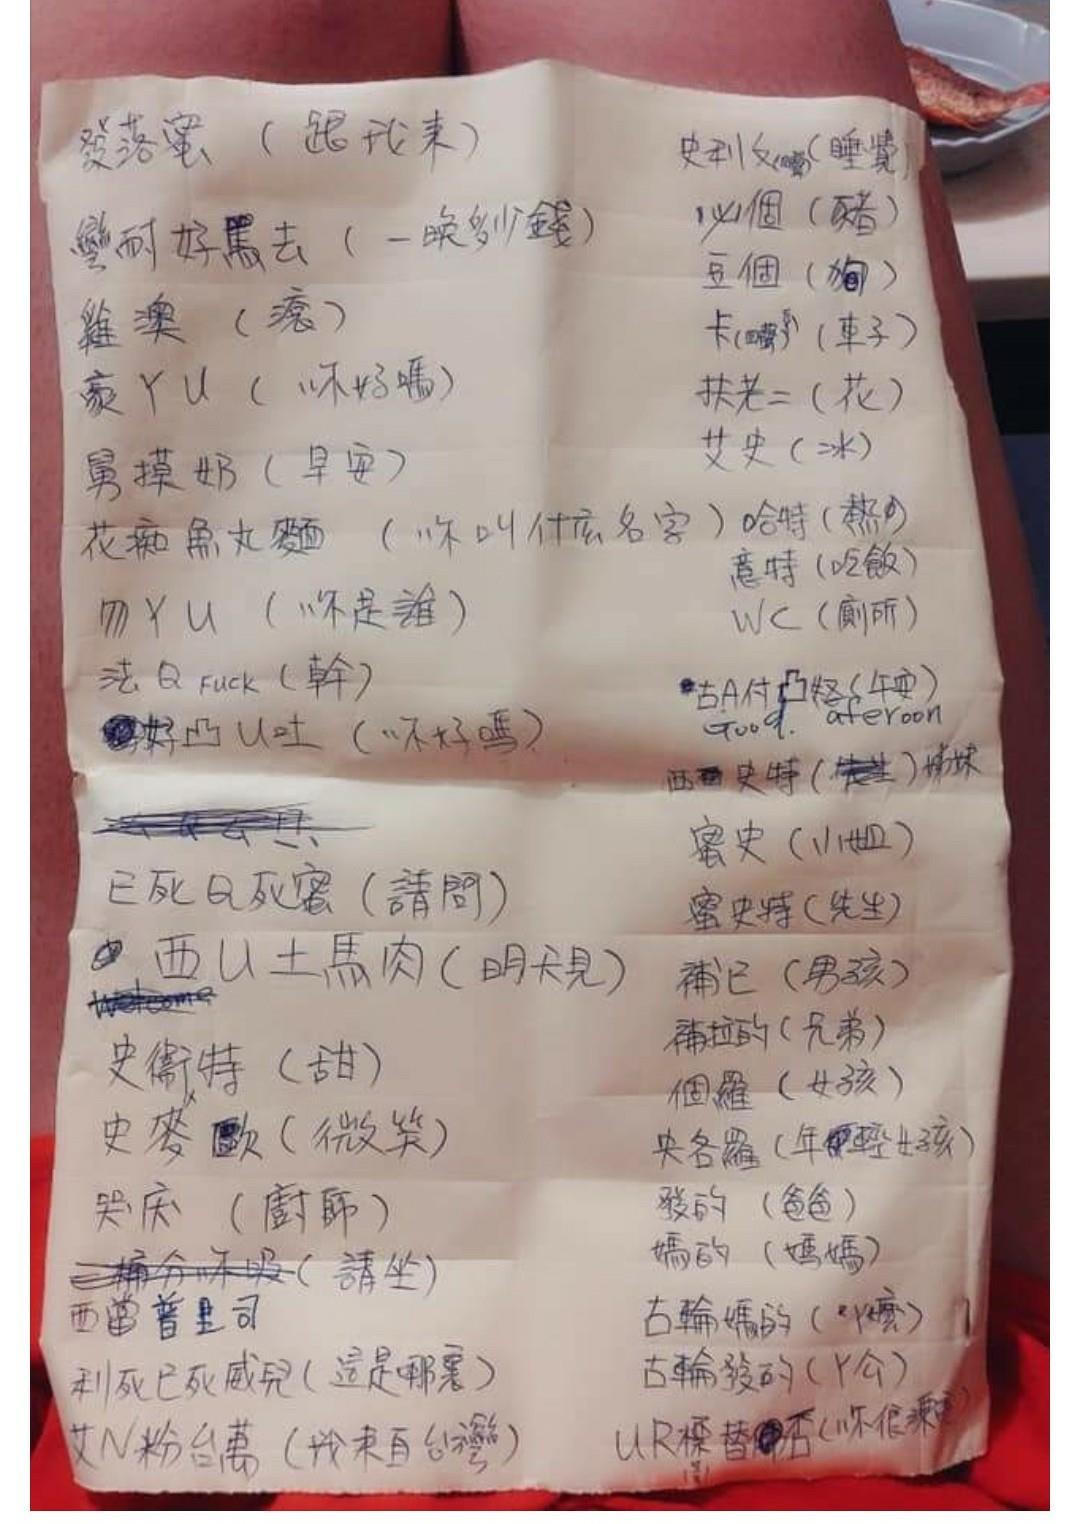 發落蜜 (跟我來)
彎耐好馬去 (一晚多少錢)
雞澳 (滾)
豪ㄚU (你好嗎)
舅摸奶 (早安)
花痴魚丸麵 (你叫什庅名字)
勿ㄚU (你是誰)
法Q FUCK (幹)
好凸U吐 (你好嗎)
已死Q死蜜 (請問)
西U土馬肉 (明天見)
Welcome
史衞特 (甜)
史麥歐 (微笑)
哭床 (廚師)
(請坐)
西當普里司
利死已死威兒 (這是哪裏)
艾N粉台萬 (我來自台灣)
史利 (睡覺)
必個 (豬)
豆個 (狗)
卡 (車子)
扶老二 (花)
艾史 (冰)
哈特 (熱)
意特 (吃飯)
WC (廁所)
古A付凸 (午安)
Good. aferoon
西史特 (先生) 姊妹
蜜史 (小姐)
蜜史特 (先生)
補已 (男孩)
補拉的 (兄弟)
個羅 (女孩)
央各羅 (年輕女孩)
發的 (爸爸)
媽的 (媽媽)
古輪媽的 (ㄚ嬤)
古輪發的 (ㄚ公)
UR標替否 (你很漂亮)